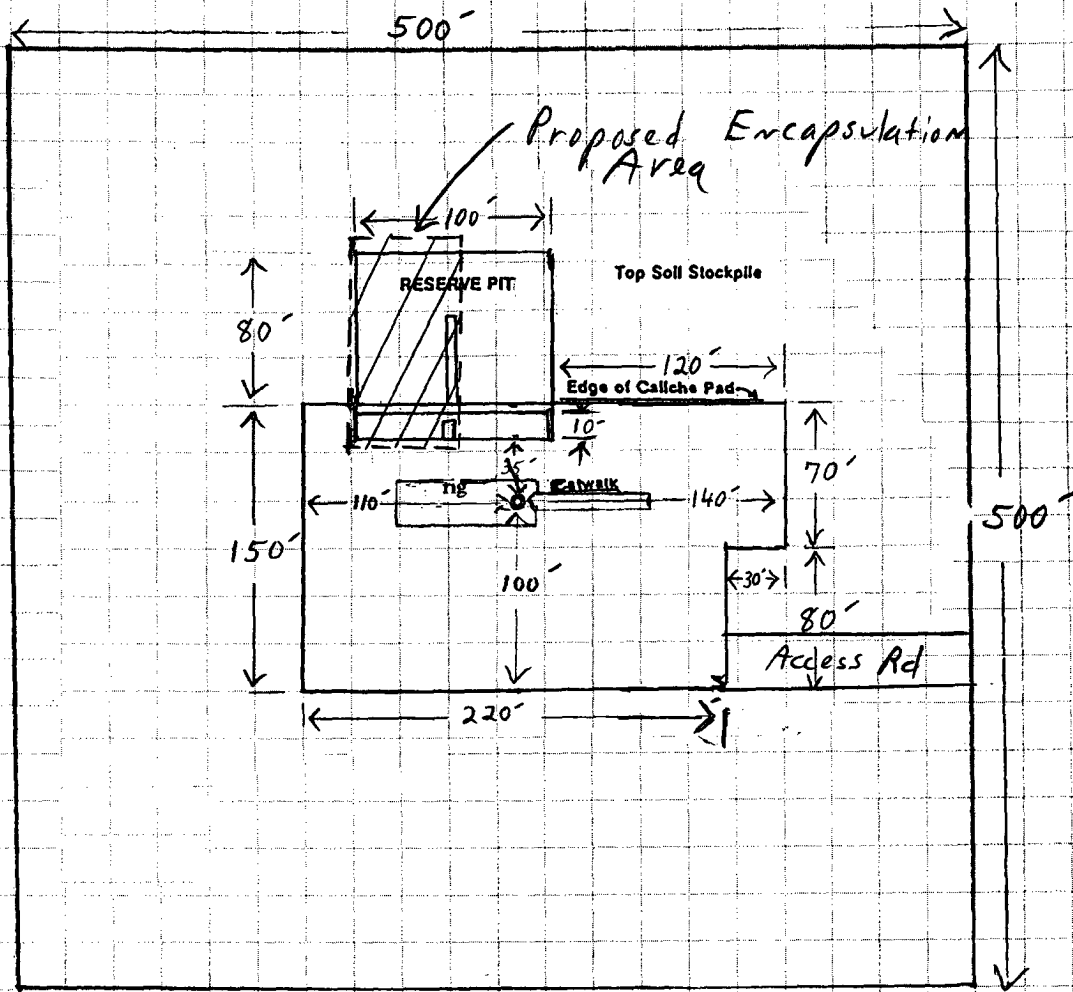 500'
Proposed Encapsulation
Area
100'
RESERVE PIT
Top Soil Stockpile
80'
120'
Edge of Caliche Pad
10'
35'
70'
rig
Catwalk
110'
140'
500'
150'
100'
30'
80'
Access Rd
220'